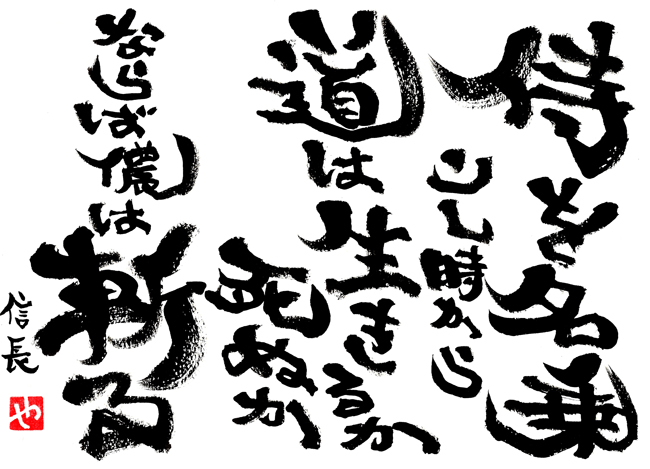 侍を名乗
りし時から
道は生きるか
死ぬか
ならば儂は斬る
信長
や